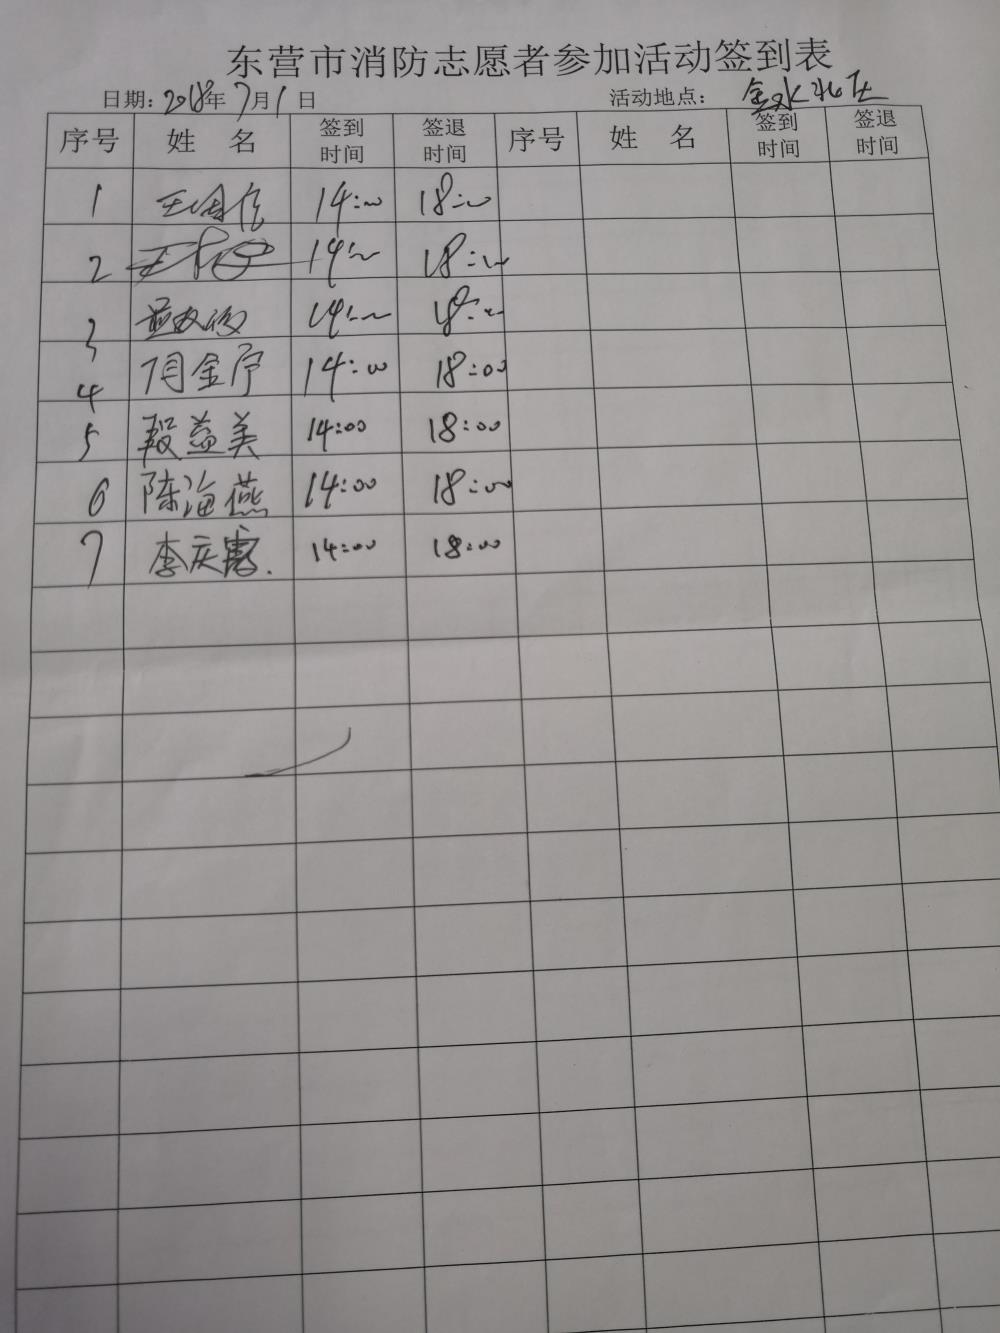 东营市消防志愿者参加活动签到表
日期：2018年7月1日 活动地点：金水北
序号 姓 名 签到时间 签退时间 序号 姓 名 签到时间 签退时间
1 王国信 14:00 18:00
2 14:00 18:00
3 14:00 18:00
4 周金序 14:00 18:00
5 段益美 14:00 18:00
6 陈海燕 14:00 18:00
7 李庆 14:00 18:00